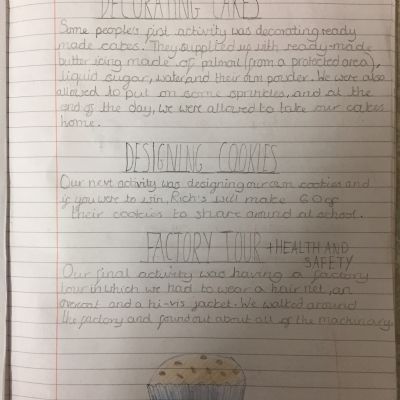 DECORATING CAKES
Some people's first activity was decorating ready
made cakes. They supplied us with ready-made
butter icing made of palmoil (from a protected area),
liquid sugar, water and their own powder. We were also
allowed to put on some sprincles, and at the
end of the day, we were allowed to take our cakes
home.
DESIGNING COOKIES
Our next activity was designing our own cookies and
if you were to win, Rich's will make 60 of
their cookies to share around at school.
FACTORY TOUR + HEALTH AND
SAFETY
Our final activity was having a factory
tour in which we had to wear a hair net, an
overcoat and a hi-vis jacket. We walked around
the factory and found out about all of the machinary.